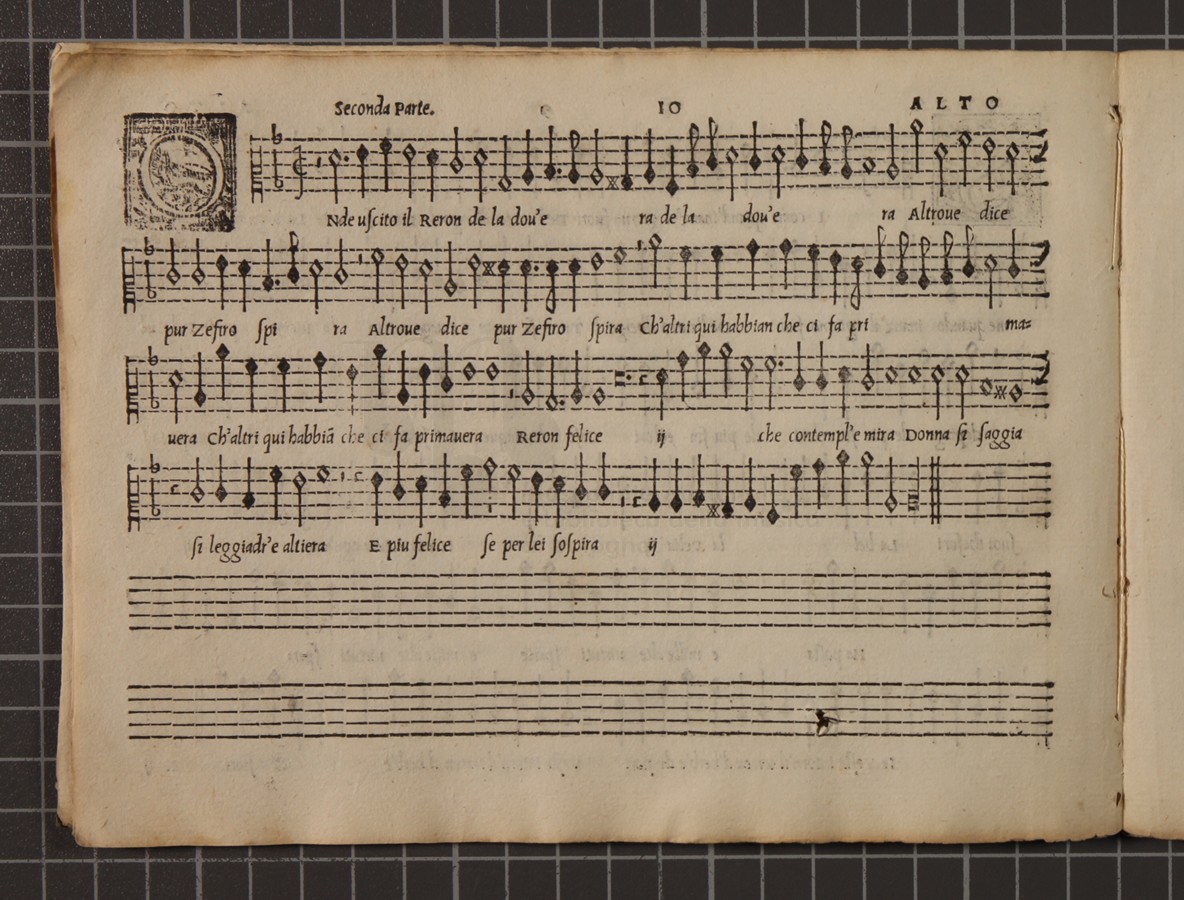 Seconda Parte. 10 ALTO
O
Nde uſcito il Reron de la dou'e ra de la dou'e ra Altroue dice
pur Zefiro ſpi ra Altroue dice pur Zefiro ſpira Ch'altri qui habbian che ci fa pri ma=
uera Ch'altri qui habbiã che ci fa primauera Reron felice ij che contempl'e mira Donna ſi ſaggia
ſi leggiadr'e altiera E piu felice ſe per lei ſoſpira ij